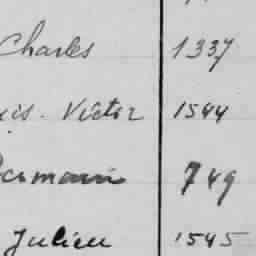 Charles 1337
is. Victor 1544
Germain 749
Julien 1545